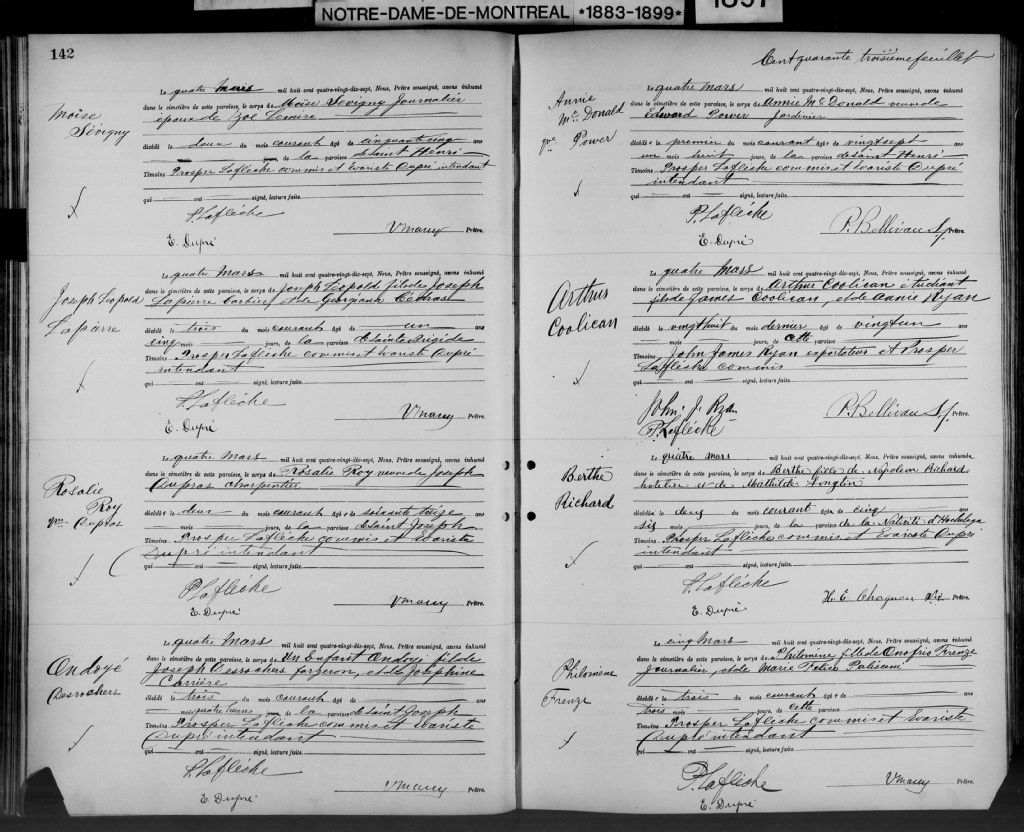 NOTRE-DAME-DE-MONTREAL *1883-1899*
1897
142
Moïse
Sévigny
Le quatre Mars mil huit cent quatre-vingt-dix-sept, Nous, Prêtre soussigné, avons inhumé
dans le cimetière de cette paroisse, le corps de Moïse Sévigny Journalier
époux de Zoé Lemire
décédé le deux du mois courant âgé de cinquante cinq ans
mois jours, de la paroisse de Saint Henri
Témoins Prosper Laflèche commis et Evariste Dupré intendant
qui ont signé, lecture faite.
P. Laflèche
E. Dupré
Prêtre.
Joseph Léopold
Lapierre
Le quatre Mars mil huit cent quatre-vingt-dix-sept, Prêtre soussigné, avons inhumé
dans le cimetière de cette paroisse, le corps de Joseph Léopold fils de Joseph
Lapierre et de Georgiana
décédé le trois du mois courant âgé de un ans
cinq mois jours, de la paroisse Sainte Brigide
Témoins Prosper Laflèche commis et Evariste Dupré
intendant
qui ont signé, lecture faite.
P. Laflèche
E. Dupré
Prêtre.
Rosalie
Roy
Dupras
Le quatre Mars mil huit cent quatre-vingt-dix-sept, Nous, Prêtre soussigné, avons inhumé
dans le cimetière de cette paroisse, le corps de Rosalie Roy veuve de Joseph
Dupras charpentier
décédée le deux du mois courant âgée de soixante treize ans
mois jours, de la paroisse de Saint Joseph
Témoins Prosper Laflèche commis et Evariste
Dupré intendant
qui ont signé, lecture faite.
P. Laflèche
E. Dupré
Prêtre.
Ondoyé
Desrochers
Le quatre Mars mil huit cent quatre-vingt-dix-sept, Nous, Prêtre soussigné, avons inhumé
dans le cimetière de cette paroisse, le corps de Un Enfant Ondoyé fils de
Joseph Desrochers forgeron, et de Joséphine
Carrière
décédé le trois du mois courant âgé de ans
mois quatre heures jours, de la paroisse de Saint Joseph
Témoins Prosper Laflèche commis et Evariste
Dupré intendant
qui ont signé, lecture faite.
P. Laflèche
E. Dupré
Prêtre.
Cent quarante troisième feuillet
Annie
McDonald
Power
Le quatre Mars mil huit cent quatre-vingt-dix-sept, Nous, Prêtre soussigné, avons inhumé
dans le cimetière de cette paroisse, le corps de Annie McDonald veuve de
Edward Power Jardinier
décédée le premier du mois courant âgée de vingt sept ans
un mois huit jours, de la paroisse de Saint Henri
Témoins Prosper Laflèche commis et Evariste Dupré
intendant
qui ont signé, lecture faite.
P. Laflèche
E. Dupré
P. Bellivau S.J. Prêtre.
Arthur
Coolican
Le quatre Mars mil huit cent quatre-vingt-dix-sept, Nous, Prêtre soussigné, avons inhumé
dans le cimetière de cette paroisse, le corps de Arthur Coolican étudiant
fils de James Coolican, et de Annie Ryan
décédé le vingt huit du mois dernier âgé de vingt un ans
mois jours, de cette paroisse
Témoins John James Ryan exportateur et Prosper
Laflèche commis
qui ont signé, lecture faite.
John J. Ryan
P. Laflèche
P. Bellivau S.J. Prêtre.
Berthe
Richard
Le quatre mars mil huit cent quatre-vingt-dix-sept, Nous, Prêtre soussigné, avons inhumé
dans le cimetière de cette paroisse, le corps de Berthe fille de Napoleon Richard
hotelier et de Mathilde Longtin
décédée le deux du mois courant âgée de cinq ans
six mois jours, de la paroisse de la Nativité d'Hochelaga
Témoins Prosper Laflèche commis et Evariste Dupré
intendant
qui ont signé, lecture faite.
P. Laflèche
E. Dupré
H. E. Chagnon Prêtre.
Philomène
Frenze
Le cinq Mars mil huit cent quatre-vingt-dix-sept, Nous, Prêtre soussigné, avons inhumé
dans le cimetière de cette paroisse, le corps de Philomène fille de Onofrio Frenze
Journalier, et de Marie
décédée le trois du mois courant âgée de ans
trois mois jours, de cette paroisse
Témoins Prosper Laflèche commis et Evariste
Dupré intendant
qui ont signé, lecture faite.
P. Laflèche
E. Dupré
Prêtre.